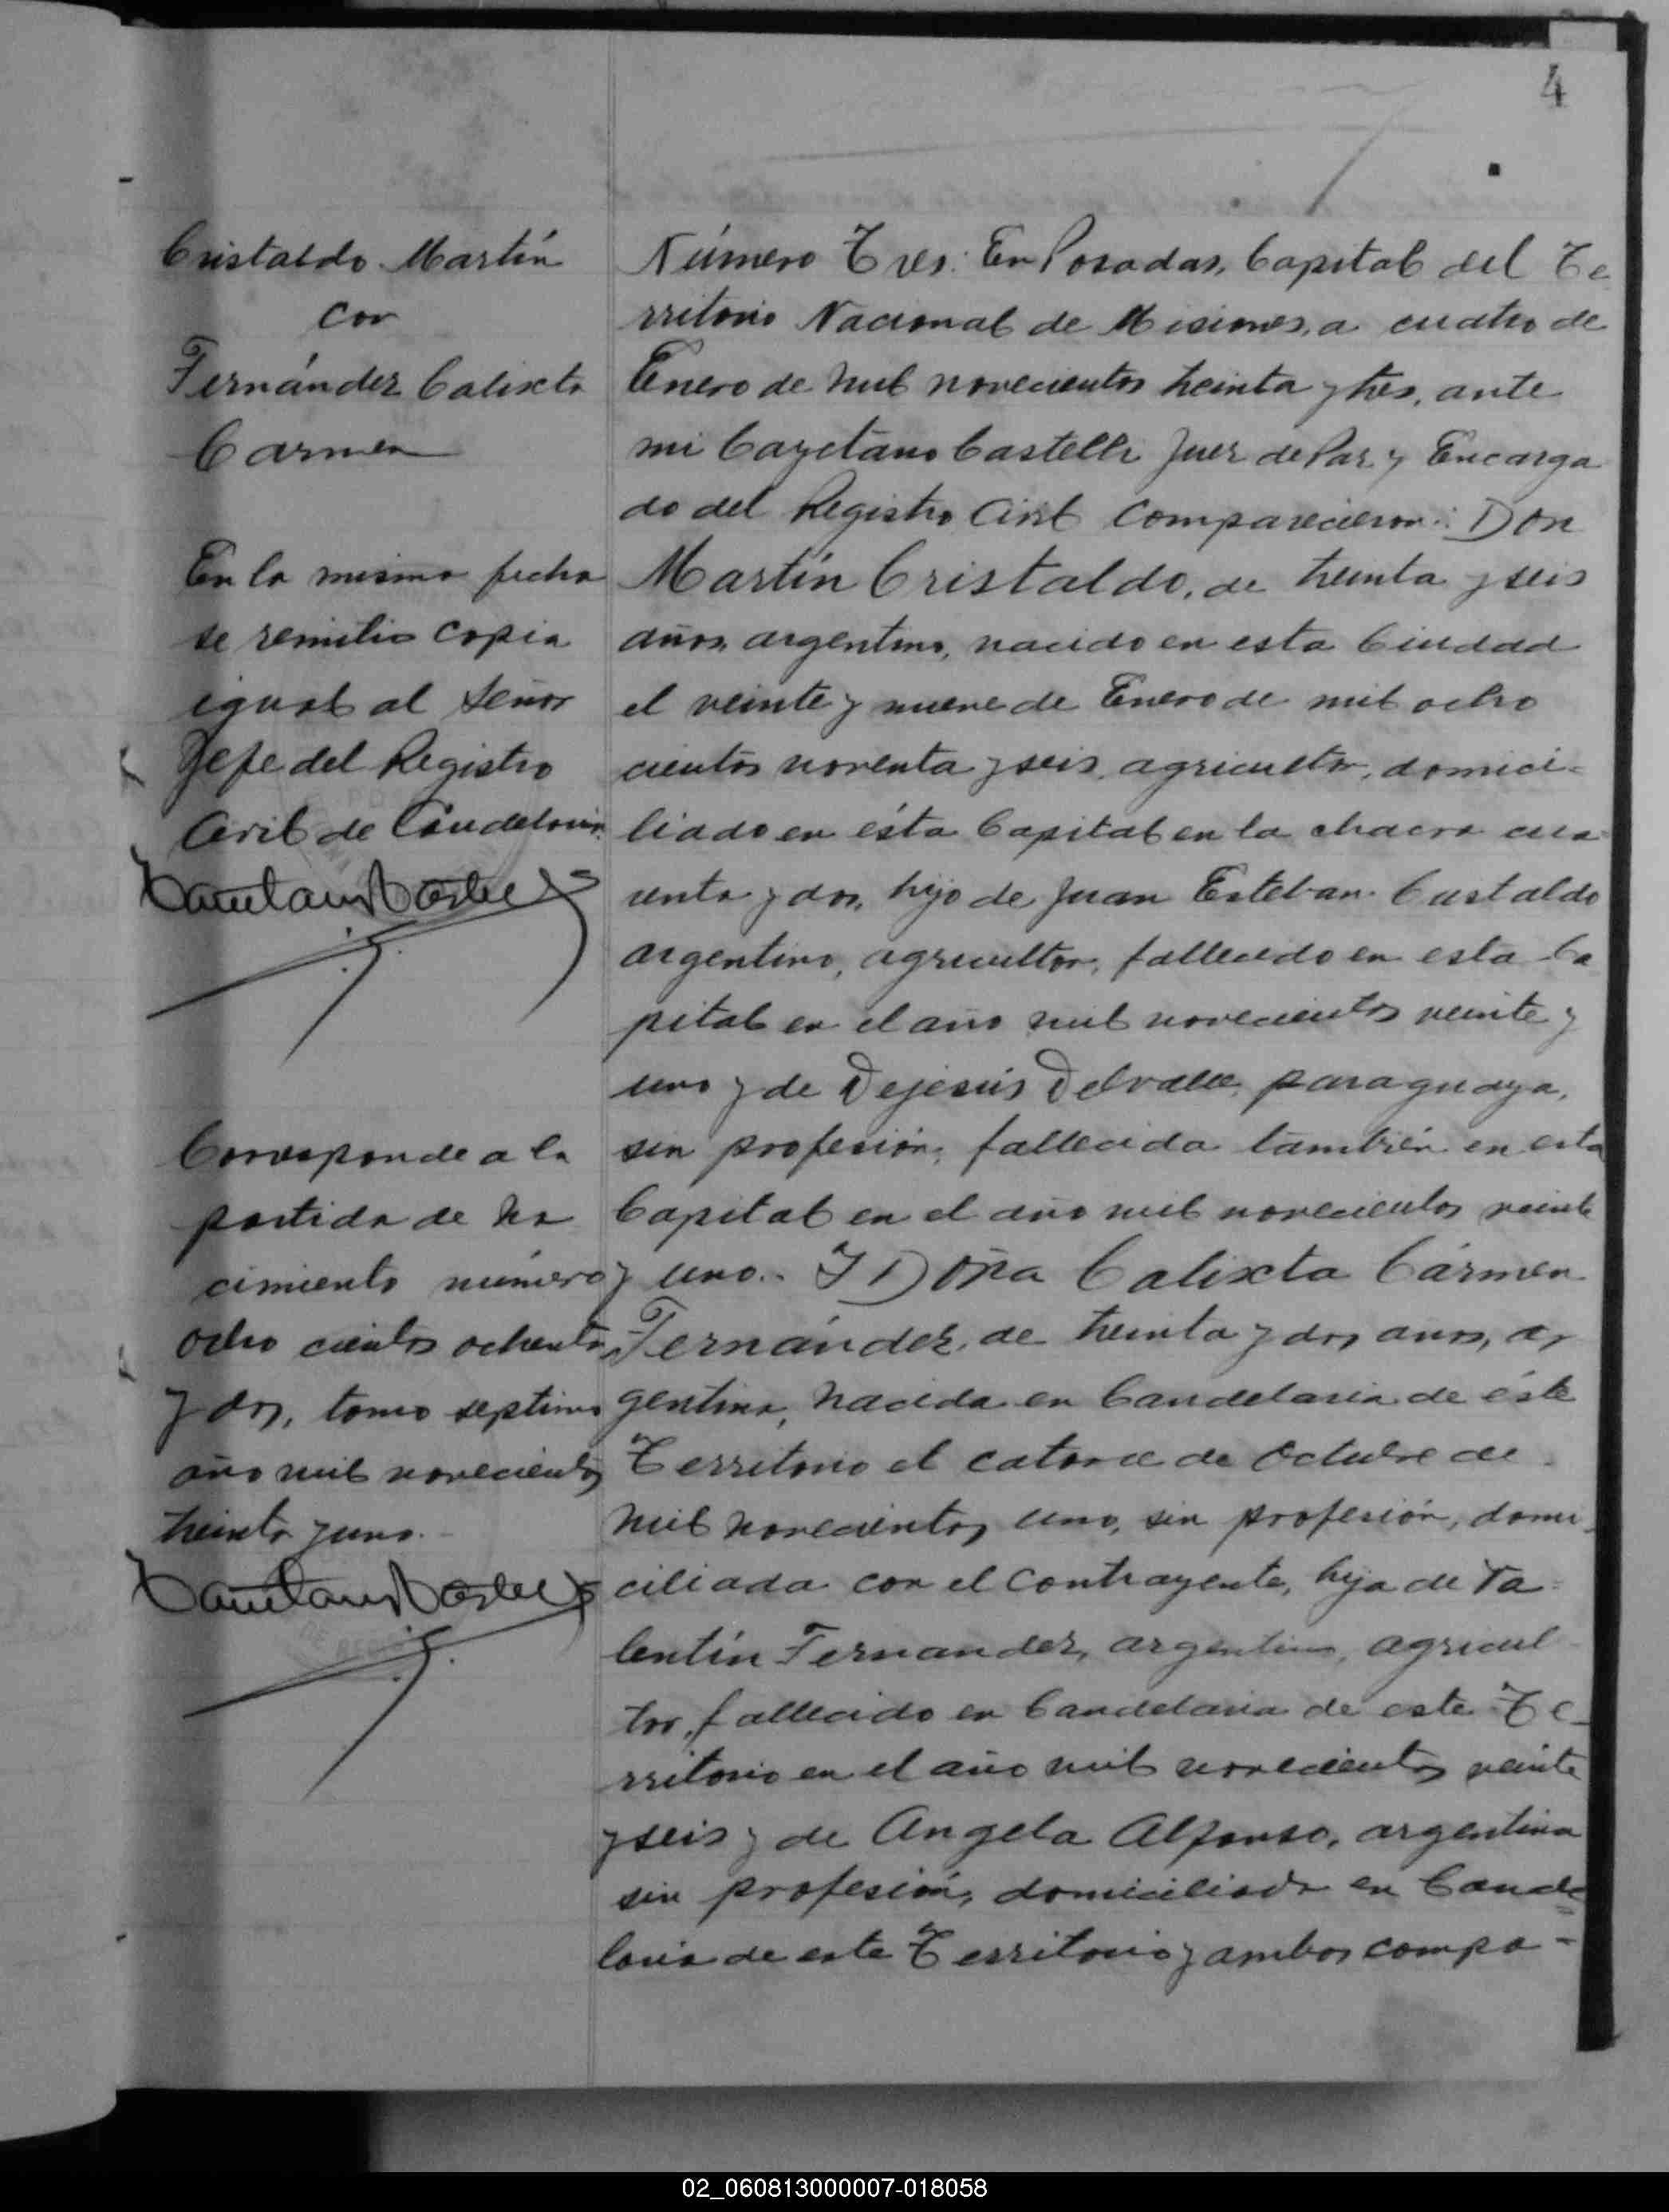 4
Cristaldo Martín
con
Fernández Calixta
Carmen
En la misma fecha
se remitió copia
igual al Señor
Jefe del Registro
Civil de Candelaria.
Corresponde a la
partida de na
cimiento número
ocho cientos ochenta
y dos, tomo septimo
año mil novecientos
treinta y uno.
Número Tres: En Posadas, Capital del Te
rritorio Nacional de Misiones, a cuatro de
Enero de mil novecientos treinta y tres, ante
mi Cayetano Castelli Juez de Paz y Encarga
do del Registro Civil comparecieron: Don
Martín Cristaldo, de treinta y seis
años, argentino, nacido en esta Ciudad
el veinte y nueve de Enero de mil ocho
cientos noventa y seis, agricultor, domici-
liado en ésta Capital en la chacra cua
renta y dos, hijo de Juan Esteban Cristaldo
argentino, agricultor, fallecido en esta Ca
pital en el año mil novecientos veinte y
uno y de Dejesús Delvalle, paraguaya,
sin profesión, fallecida también en esta
Capital en el año mil novecientos veinte
y uno.- Y Doña Calixta Cármen
Fernández, de treinta y dos años, ar
gentina, nacida en Candelaria de éste
Territorio el catorce de Octubre de
mil novecientos uno, sin profesión, domi-
ciliada con el contrayente, hija de Va=
lentín Fernandez, argentino, agricul
tor, fallecido en Candelaria de este Te-
rritorio en el año mil novecientos veinte
y seis y de Angela Alfonso, argentina
sin profesión, domiciliada en Cande=
laria de este Territorio y ambos compa-
02_060813000007-018058